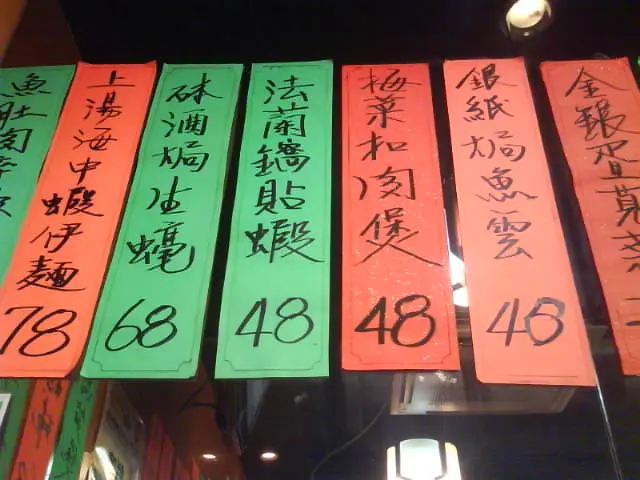 魚肚肉
上湯海中蝦伊麵
78
砵酒焗生蠔
68
法蘭鑊貼蝦
48
梅菜扣肉煲
48
銀紙焗魚雲
48
金銀蛋莧菜